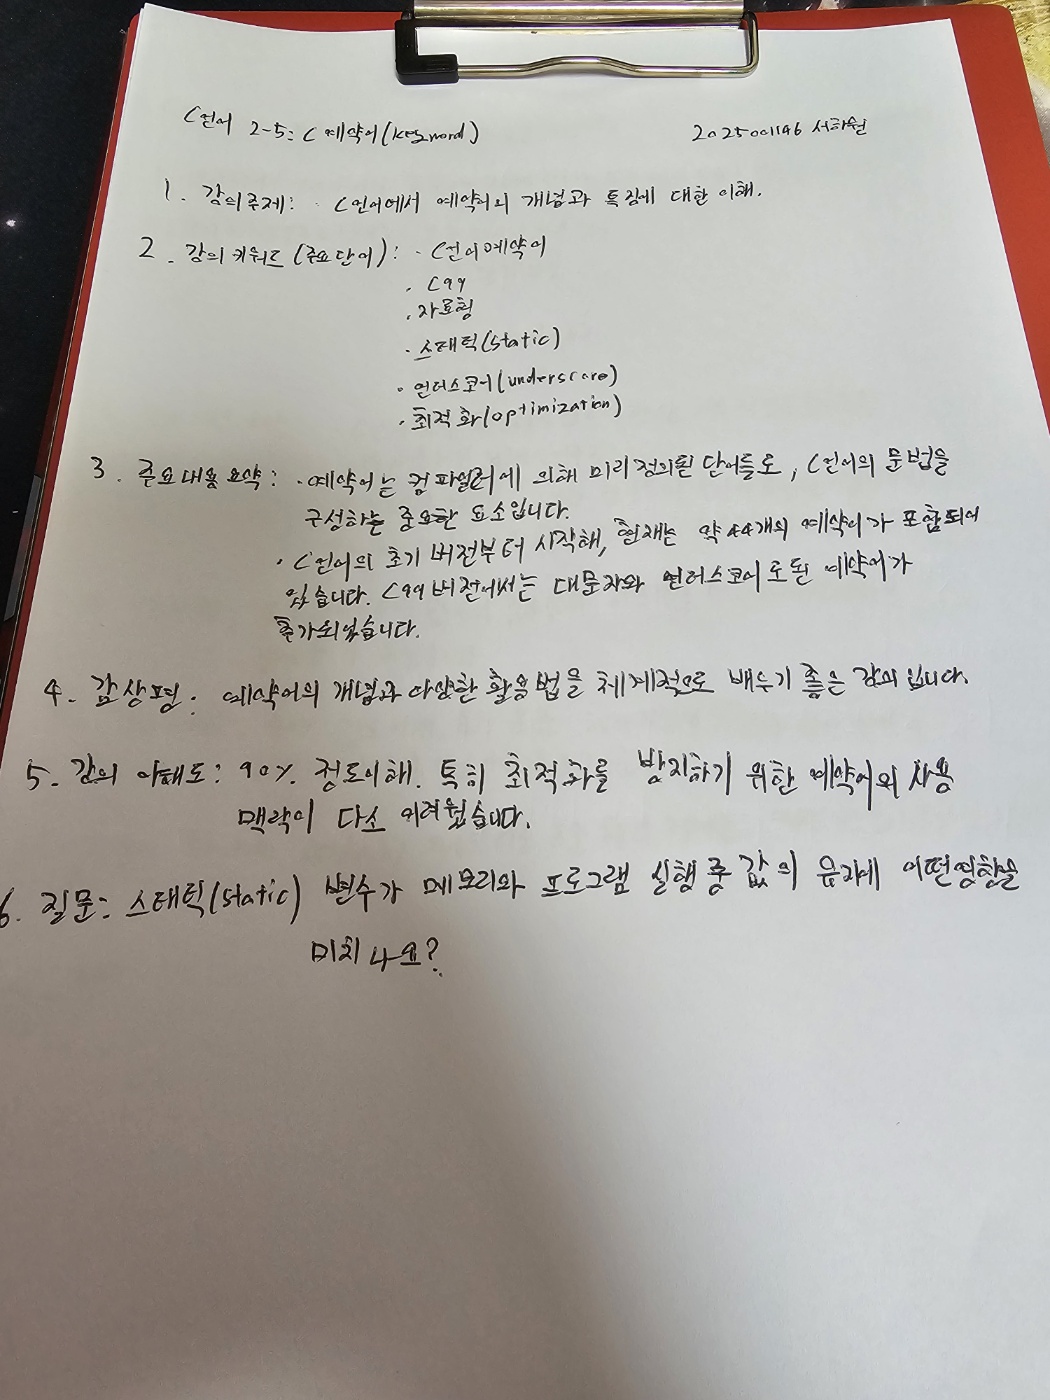 C언어 2-5: C 예약어(keyword)
2025001146 서하원
1. 강의주제: · C언어에서 예약어의 개념과 특징에 대한 이해.
2. 강의 키워드(주요단어): · C언어예약어
· C99
· 자료형
· 스태틱(static)
· 언더스코어(underscore)
· 최적화(optimization)
3. 주요내용요약: · 예약어는 컴파일러에 의해 미리 정의된 단어들로, C언어의 문법을
구성하는 중요한 요소입니다.
· C언어의 초기 버전부터 시작해, 현재는 약 44개의 예약어가 포함되어
있습니다. C99 버전에서는 대문자와 언더스코어로 된 예약어가
추가되었습니다.
4. 감상평: 예약어의 개념과 다양한 활용법을 체계적으로 배우기 좋은 강의입니다.
5. 강의 이해도: 90% 정도이해. 특히 최적화를 방지하기 위한 예약어의 사용
맥락이 다소 어려웠습니다.
6. 질문: 스태틱(static) 변수가 메모리와 프로그램 실행 중 값의 유지에 어떤영향을
미치나요?